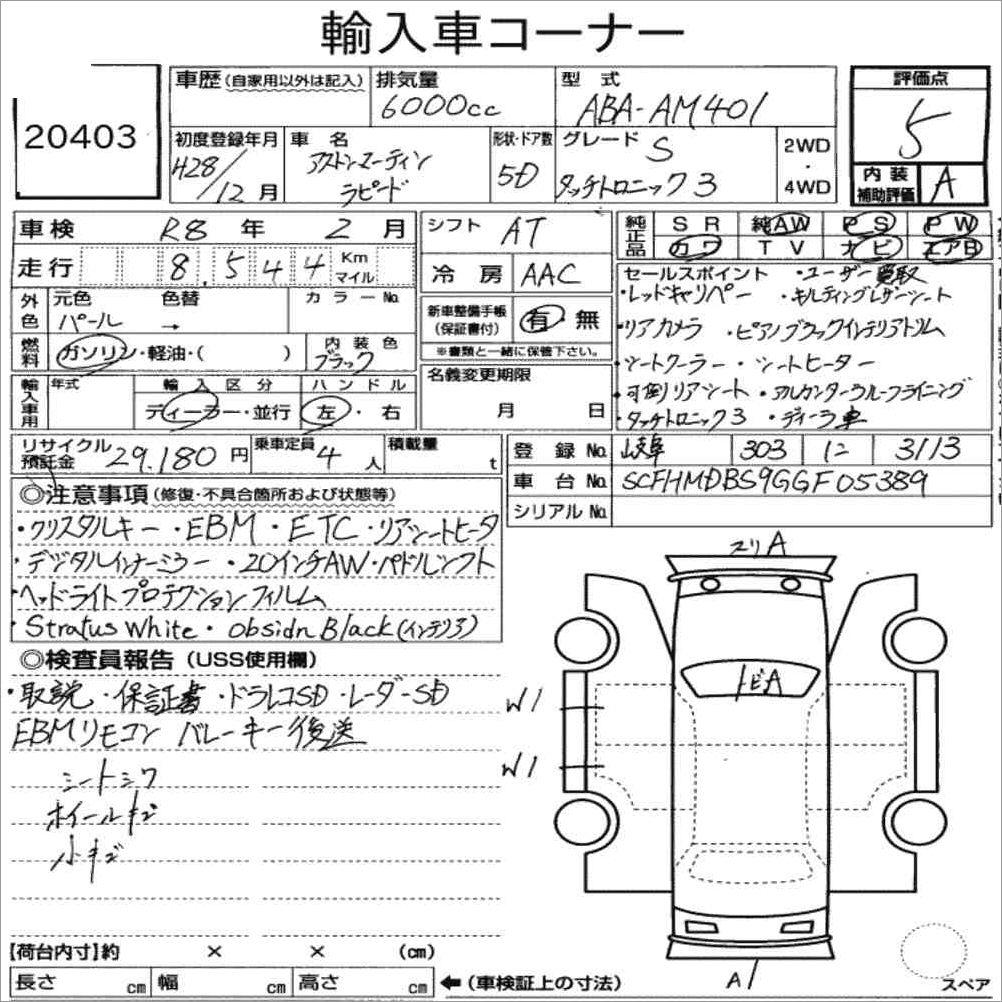 輸入車コーナー
20403
車歴(自家用以外は記入) 排気量 6000cc 型式 ABA-AM401 評価点 5
初度登録年月 H28/12月 車名 アストンマーティン ラピード 形状・ドア数 5D グレード S タッチトロニック3 2WD・4WD 内装補助評価 A
車検 R8年 2月 シフト AT 純正品 SR 純AW PS PW
走行 8,544 Km マイル 冷房 AAC カワ TV ナビ エアB
外色 元色 パール 色替 → カラーNo. 新車整備手帳(保証書付) 有・無
燃料 ガソリン・軽油・( ) 内装色 ブラック ※書類と一緒に保管下さい。
輸入車用 年式 輸入区分 ディーラー・並行 ハンドル 左・右 名義変更期限 月 日
セールスポイント ・ユーザー買取
・レッドキャリパー ・キルティングレザーシート
・リアカメラ ・ピアノブラックインテリアトリム
・シートクーラー ・シートヒーター
・可倒リアシート ・アルカンターラルーフライニング
・タッチトロニック3 ・ディーラ車
リサイクル預託金 29,180円 乗車定員 4人 積載量 t
登録No. 岐阜 303 に 3113
車台No. SCFHMDBS9GGF05389
シリアルNo.
◎注意事項(修復・不具合箇所および状態等)
・クリスタルキー ・EBM ・ETC ・リアシートヒータ
・デジタルインナーミラー ・20インチAW ・パドルシフト
・ヘッドライトプロテクションフィルム
・Stratus White ・Obsidn Black(インテリア)
◎検査員報告(USS使用欄)
・取説 ・保証書 ・ドラレコSD ・レーダーSD
EBMリモコン バレーキー後送
シートシワ
ホイールキズ
小キズ
スリA
トビA
W1
W1
A1
スペア
【荷台内寸】約 × × (cm)
長さ cm 幅 cm 高さ cm ←(車検証上の寸法)